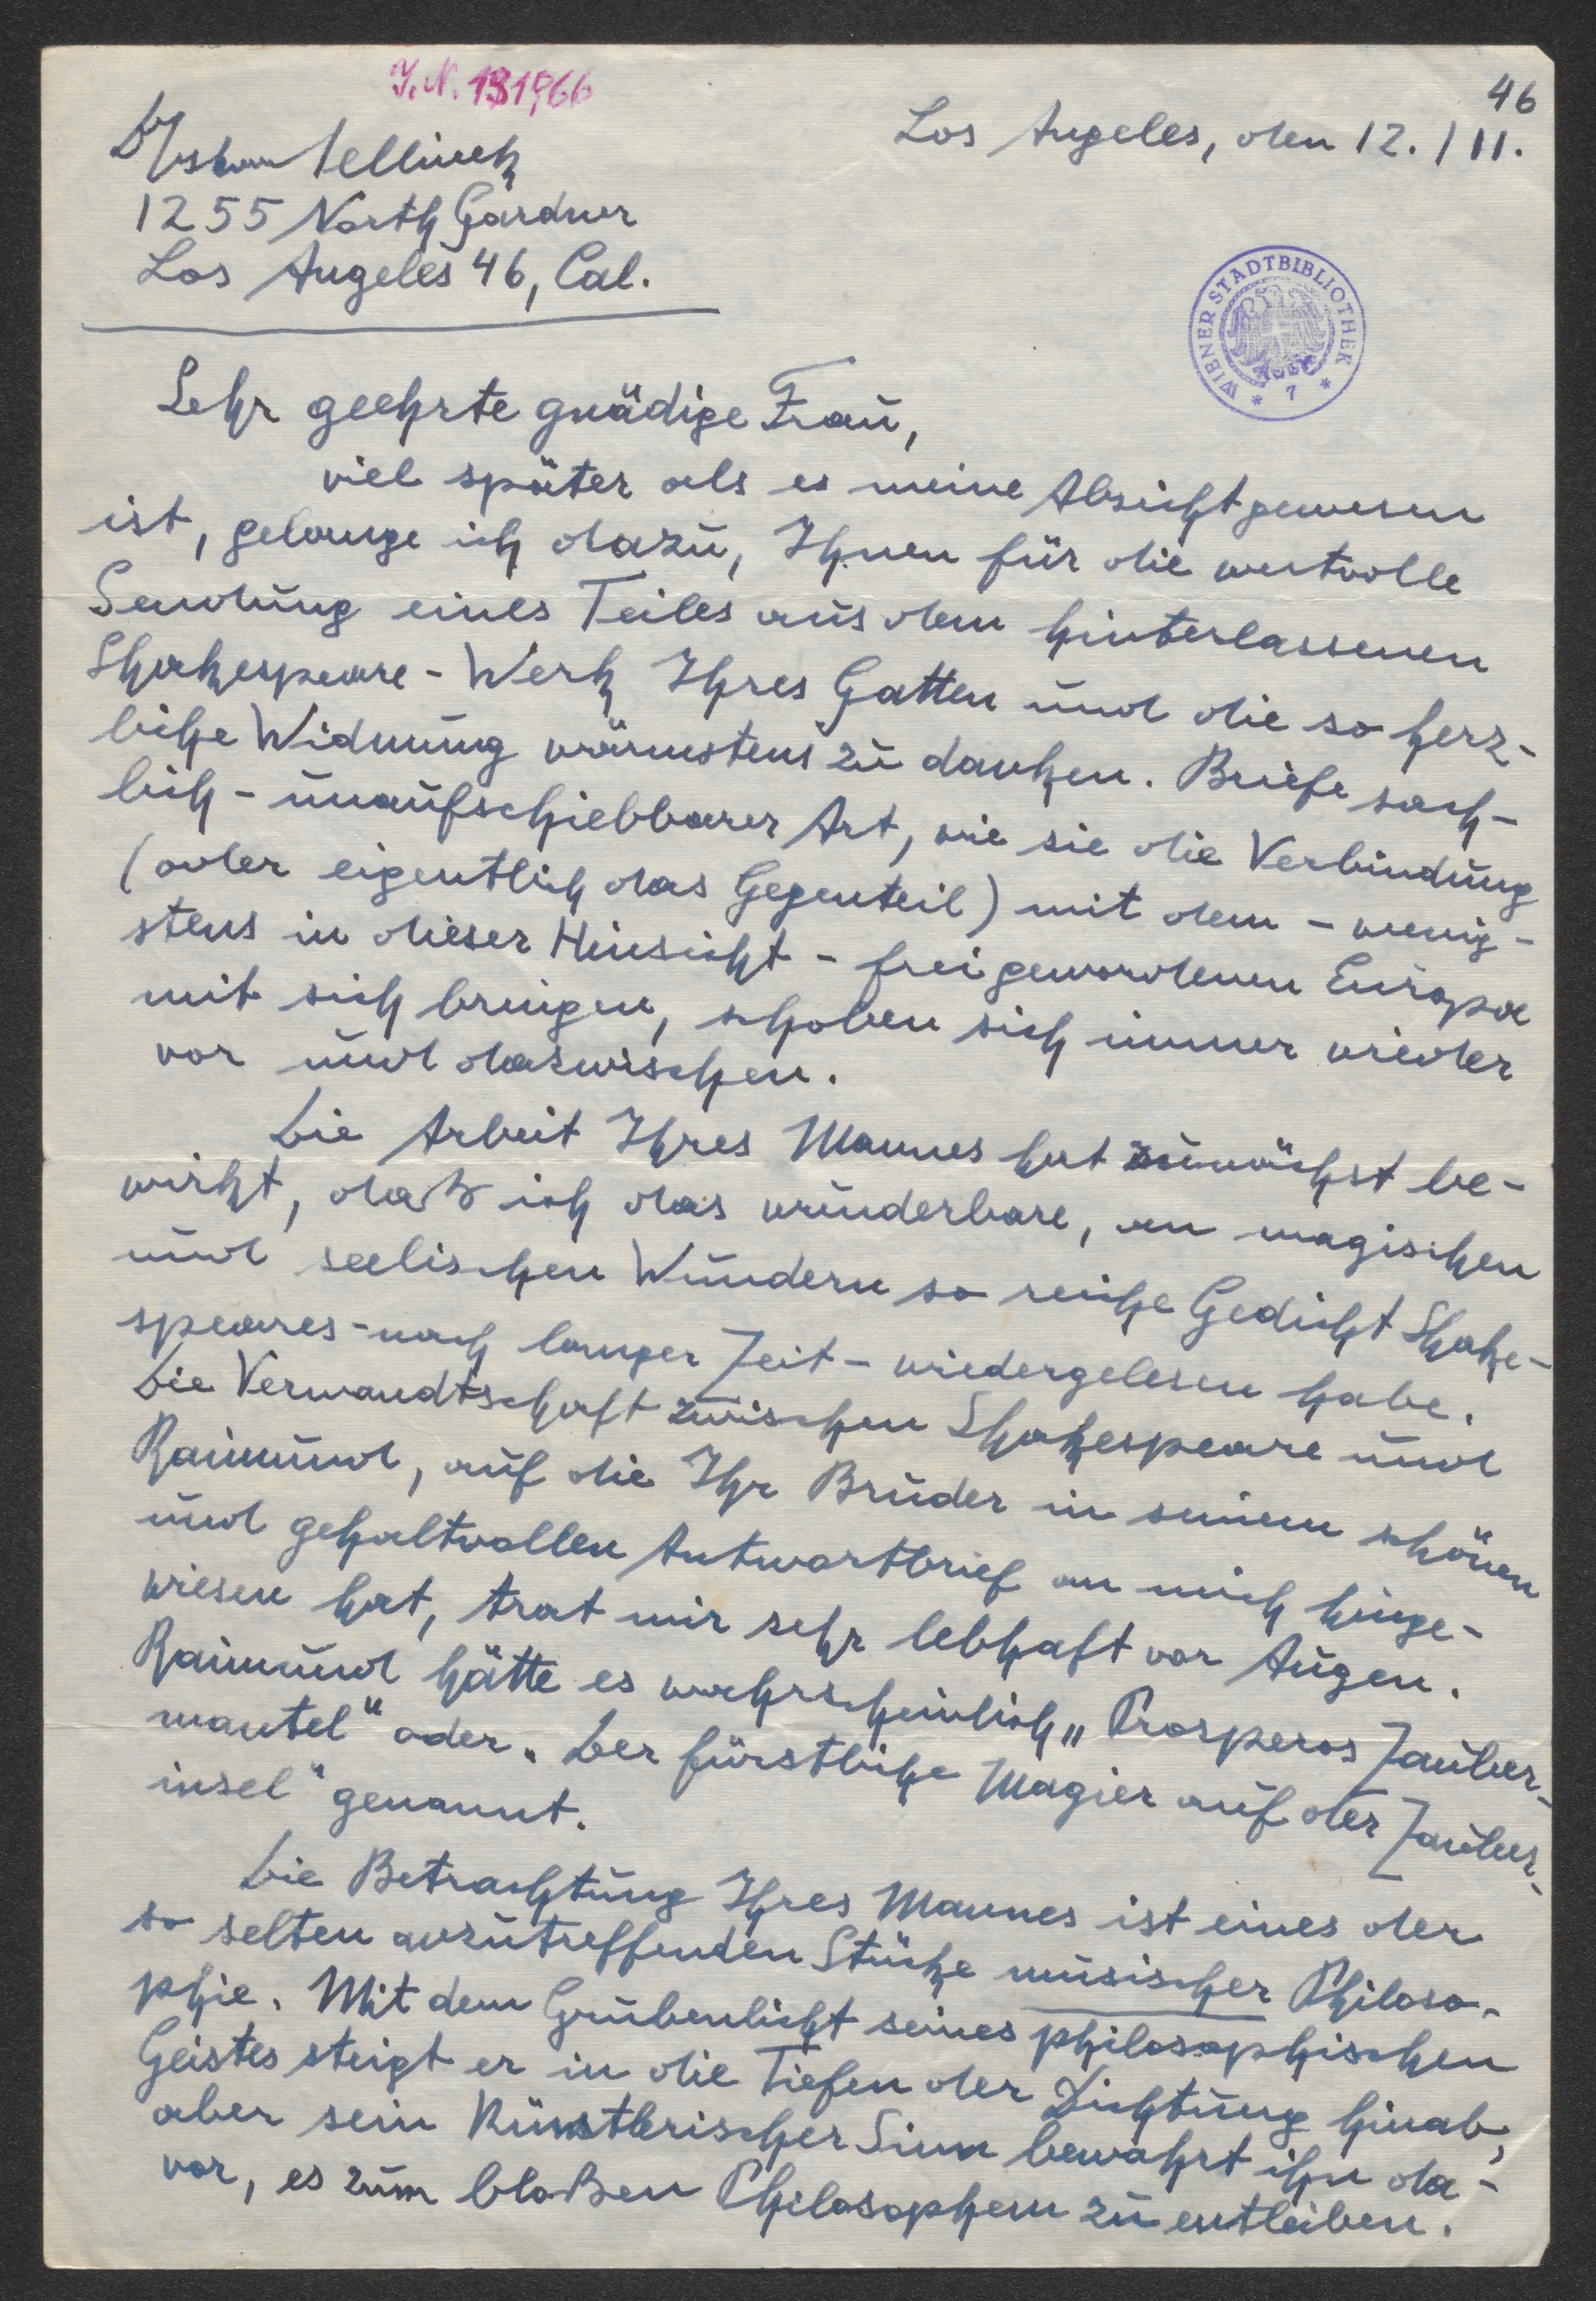 J.N. 131966
46
Los Angeles, den 12. / 11.
Dr Oskar Jellinek
1255 North Gardner
Los Angeles 46, Cal.
WIENER STADTBIBLIOTHEK * 7 *
Sehr geehrte gnädige Frau,
viel später als es meine Absicht gewesen
ist, gelange ich dazu, Ihnen für die wertvolle
Sendung eines Teiles aus dem hinterlassenen
Shakespeare-Werk Ihres Gatten und die so herz-
liche Widmung wärmstens zu danken. Briefe sach-
lich-unaufschiebbarer Art, wie sie die Verbindung
(oder eigentlich das Gegenteil) mit dem - wenig-
stens in dieser Hinsicht - frei gewordenen Europa
mit sich bringen, schoben sich immer wieder
vor und dazwischen.
Die Arbeit Ihres Mannes hat zunächst be-
wirkt, daß ich das wunderbare, an magischen
und seelischen Wundern so reiche Gedicht Shake-
speares - nach langer Zeit - wiedergelesen habe.
Die Verwandtschaft zwischen Shakespeare und
Raimund, auf die Ihr Bruder in seinem schönen
und gehaltvollen Antwortbrief an mich hinge-
wiesen hat, trat mir sehr lebhaft vor Augen.
Raimund hätte es wahrscheinlich „Prosperos Zauber-
mantel" oder „Der fürstliche Magier auf der Zauber-
insel" genannt.
Die Betrachtung Ihres Mannes ist eines der
so selten anzutreffenden Stücke musischer Philoso-
phie. Mit dem Grubenlicht seines philosophischen
Geistes steigt er in die Tiefen der Dichtung hinab,
aber sein künstlerischer Sinn bewahrt ihn da-
vor, es zum bloßen Philosophem zu entleiben.